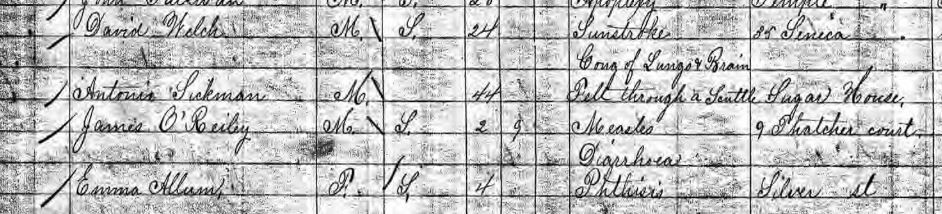 David Welch M. S. 24 Sunstroke 85 Seneca "
Cong of Lungs & Brain
Antonio Sickman M. 44 Fell through a Scuttle Sugar House,
James O'Reiley M. S. 2 9 Measles 9 Thatcher court
Diarrhoea
Emma Allum, F. S. 4 Phthisis Silver st